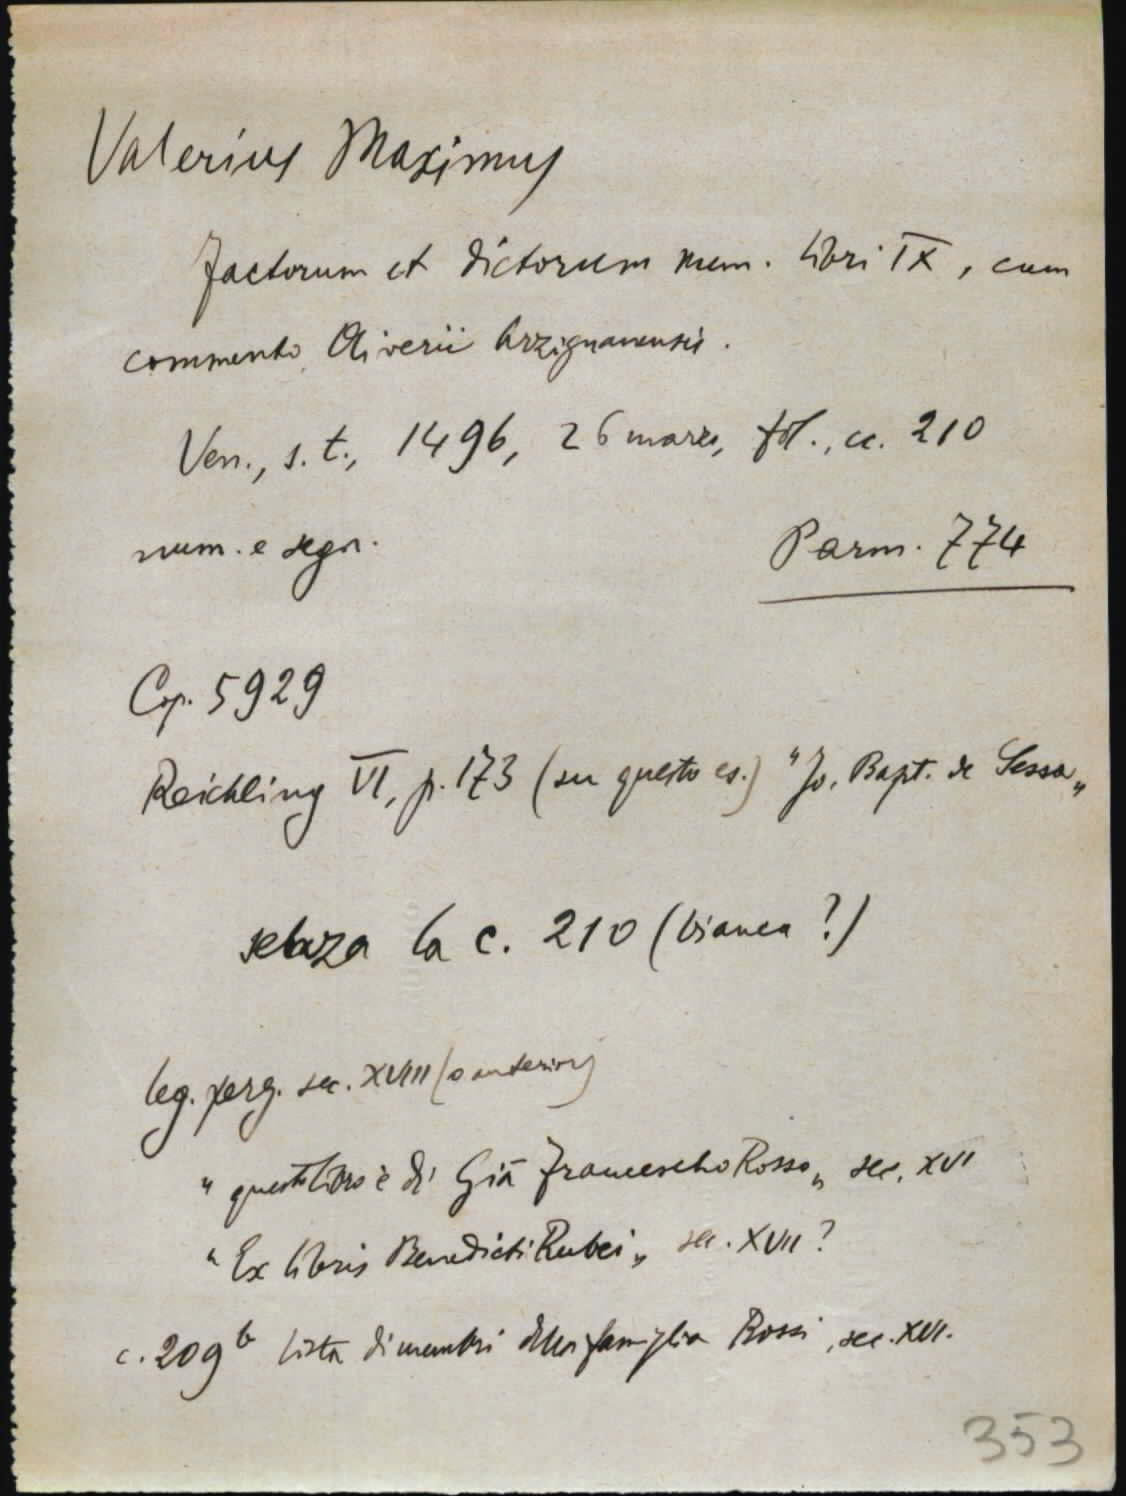 Valerius Maximus
Factorum et dictorum mem. libri IX, cum
commento Oliverii Arzignanensis.
Ven., s. t., 1496, 26 marzo, fol., cc. 210
num. e segn.
Parm. 774
Cop. 5929
Reichling VI, p. 173 (su questo es.) "Jo. Bapt. de Sessa"
senza la c. 210 (bianca?)
leg. perg. sec. XVIII (o anterior)
"questo libro è di Giã Francescho Rosso" sec. XVI
"Ex libris Benedicti Rubei" sec. XVII?
c. 209b lista di membri della famiglia Rossi, sec. XVI.
353